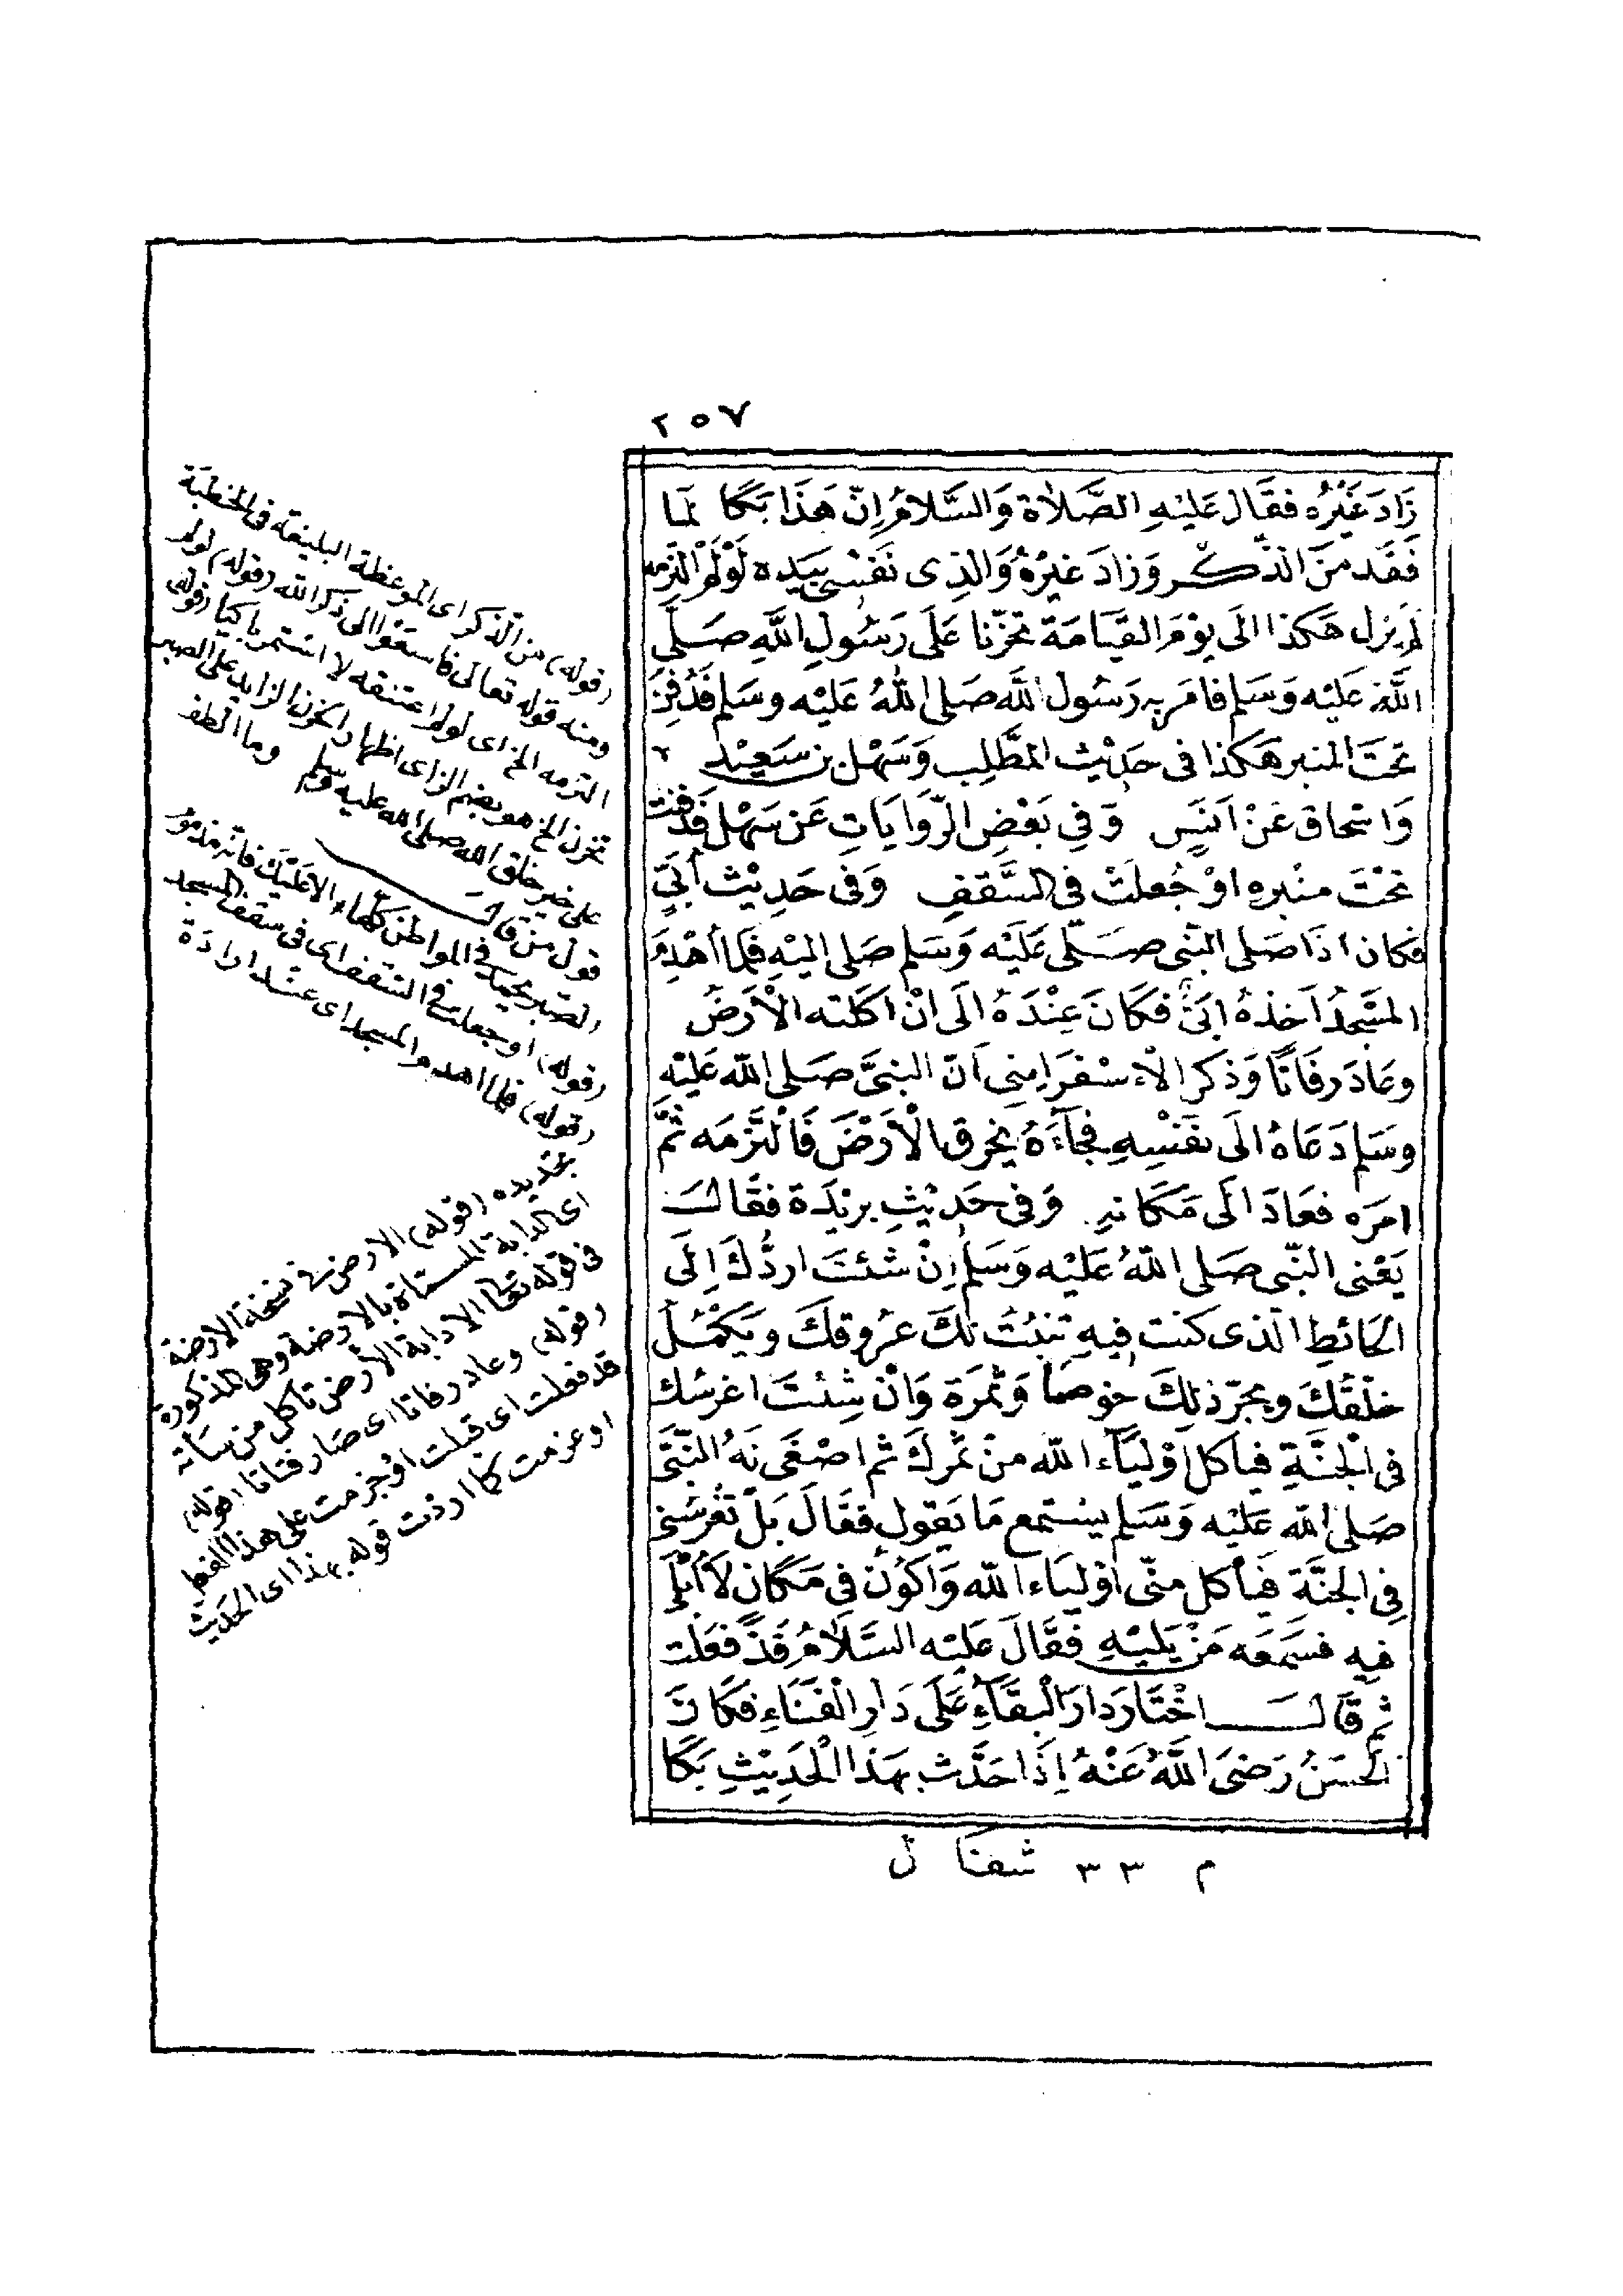 ٢٥٧
زَادَ غَيْرُه فَقَال عَلَيْهِ الصَّلَاة وَالسَّلامُ اِنّ هَذَا بَكَا لمَا
فَقَد مِنَ الذّكر وَزادَ غيْرُهُ وَالذِى نَفْسِى بِيَدِه لَوْ لَمْ اَلْتَزِمه
لم يزل هَكذا الَى يوْمَ القيَامَة تحزّنا عَلَى رَسُولِ اللَّهِ صَلَّى
اللَّهُ عَليْه وَسَلم فامَر به رَسُول اللَّه صَلى اللهُ عَليْه وسَلم فَدُفِنَ
تحتَ المنبر هَكذا فى حَديْث المطَّلِب وَسَهْل بن سَعِيْد
وَاسْحاق عَنْ اَنَسٍ وَفِي بَعْضِ الرّوَايَاتِ عَن سَهْل فَدُفنت
تحْتَ منْبَرِهِ اوْ جُعلَتْ فى السَّقفِ وَفى حَدِيْث أُبَىّ
فكان اذَا صَلى النَّبى صَلّى عَلَيْه وَسَلم صَلى اليْهِ فَلما أهْدِمَ
المَسْجدُ اَخذهُ اُبَىّ فكَانَ عِنْدَهُ الَى انْ اكَلَته الْاَرَضُ
وعَادَ رفَاتًا وَذكَر الْاسْفَرَاينى اَنّ النبىَّ صَلى اللّه عَليْهِ
وسَلم دَعَاهُ الَى نَفْسِهِ فجآءَهُ يَخرق الْاَرْضَ فَالْتَزمَه ثُمَّ
امرَه فعَادَ الَى مَكَانهِ وَفى حَديْثِ برَيْدَة فقَالَ
يَعْنى النّبى صَلى اللّهُ عَليْه وَسَلم اِنْ شئتَ اردُّكَ اِلَى
الحَائطِ الّذى كنت فيهِ تنبُتُ لكَ عُرُوقكَ ويَكْمُل
خلْقُكَ ويجدّد لِكَ خوصا وَثمرَة وَانْ شِئتَ اغرسُك
فى الْجنَّةِ فياَكل اَوْليَآء اللّه منْ ثمَركَ ثم اصْغَى لَهُ النَّبَّى
صَلى اللّه عَليْه وَسَلم يسْتمع مَا يَقول فقَالَ بَلْ تَغرِسُنى
فِى الجنَّة فيأكل منّى اوْليَاء اللّه وَاكُونُ فِى مَكَانٍ لاَ أَبْلَى
فيه فسَمعَه مَنْ يَليْهِ فَقَالَ عَليْه السَّلَامُ قَدْ فَعَلت
ثم قَالَ اخْتَارَ دَارَ الْبقَآءِ عَلَى دَارِ الْفَنَاءِ فكَانَ
الحسَنُ رَضىَ اللَّهُ عَنْهُ اِذَا حَدَّث بهَذَا الْحَدِيْثِ بَكَا
م ٣٣ شفنا ل
(قوله) من الذكر اى الموعظة البليغة فى الخطبَة
ومنه قوله تعالى فاسعَوْا الى ذكر الله (قوله) لو لم
التزمه الخ اى لو لم اعتنقه لاستمر باكيا (قوله)
تحزن الخ هو بضم الزاى اظهار الحزن الزايد على الصبر
على خير خلق الله صلى الله عليه وسلم وما الطف
قول من قال
الصّبر يحمد فى المواطن كلهاء الا عَليكَ فانه مذموم
(قوله) او جعلت فى السّقف اى فى سقف المسجد
(قوله) فلما اهدم المسجد اى عند ارادة
تجديده (قوله) الارض فى نسخة الارضة
اى الدابة المسمّاة بالارضة وهى المذكورة
فى قوله تعالى الا دابة الأرض تاكل من منسأته
(قوله) وعاد رفاتا اى صَار فتاتا (قوله)
قد فعلت اى قبلت اوْ جزمت على هذا الفعل
او عزمت كما اردت قوله بهذا اى الحديث